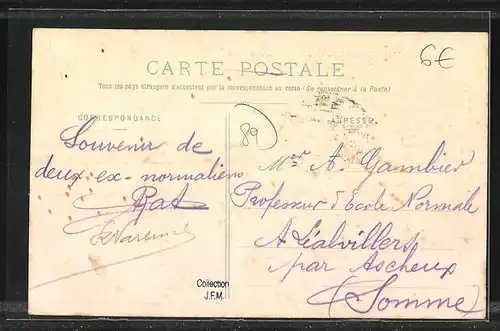 6€
CARTE POSTALE
Tous les pays étrangers n'acceptent pas la correspondance au recto (Se renseigner à la Poste)
CORRESPONDANCE
ADRESSE
89
Souvenir de
deux ex-normaliens
Rat
Devarenne
Mr A. Gambier
Professeur d'Ecole Normale
A Léalvillers
par Acheux
(Somme)
Collection
J.F.M.